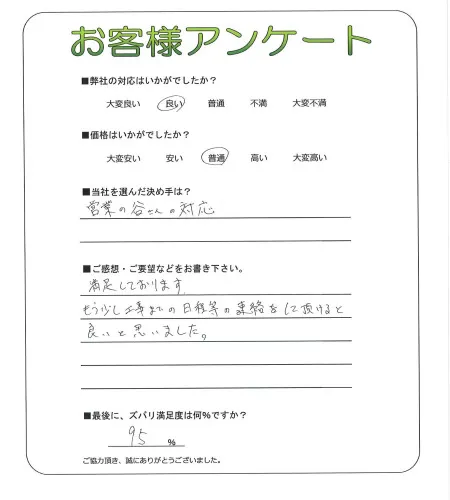 お客様アンケート
■弊社の対応はいかがでしたか？
大変良い 良い 普通 不満 大変不満
■価格はいかがでしたか？
大変安い 安い 普通 高い 大変高い
■当社を選んだ決め手は？
営業の谷さんの対応
■ご感想・ご要望などをお書き下さい。
満足しております
もう少し工事までの日程等の連絡をして頂けると
良いと思いました。
■最後に、ズバリ満足度は何％ですか？
95 ％
ご協力頂き、誠にありがとうございました。